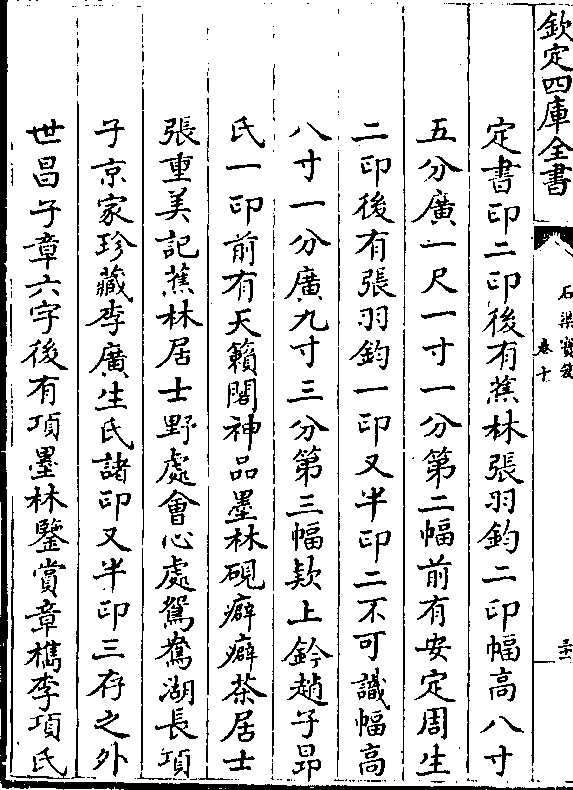 欽定四庫全書
石渠寶笈
卷十
三十一
定書印二印後有蕉林張羽鈞二印幅高八寸
五分廣一尺一寸一分第二幅前有安定周生
二印後有張羽鈞一印又半印二不可識幅高
八寸一分廣九寸三分第三幅款上鈐趙子昂
氏一印前有天籟閣神品墨林硯癖癖茶居士
張重美記蕉林居士野處會心處鴛鴦湖長項
子京家珍藏李廣生氏諸印又半印三存之外
世昌子章六字後有項墨林鑒賞章檇李項氏